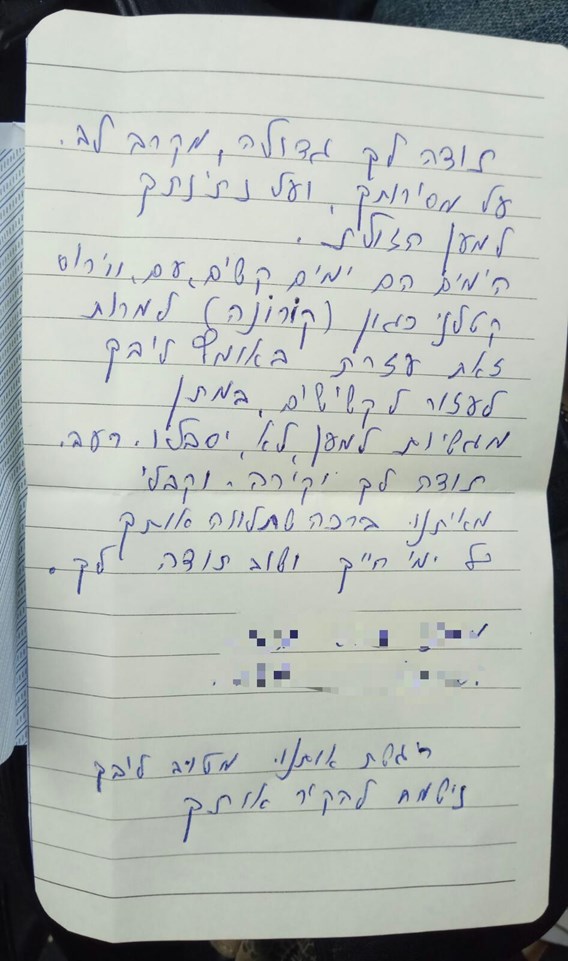 תודה לך גדולה, מקרב לב.
על מסירותך, ועל נתינתך
למען הזולת.
הימים הם ימים קשים, עם ווירוס
קטלני כגון (קורונה) למרות
זאת עזרת באומץ ליבך
לעזור לקשישים, במתן
מגשיות למען לא יסבלו. רעב.
תודה לך יקירה. וקבלי
מאיתנו ברכה שתלווה אותך
כל ימי חייך ושוב תודה לך.
ריגשת אותנו. מטוב ליבך
נישמח להקיר אותך